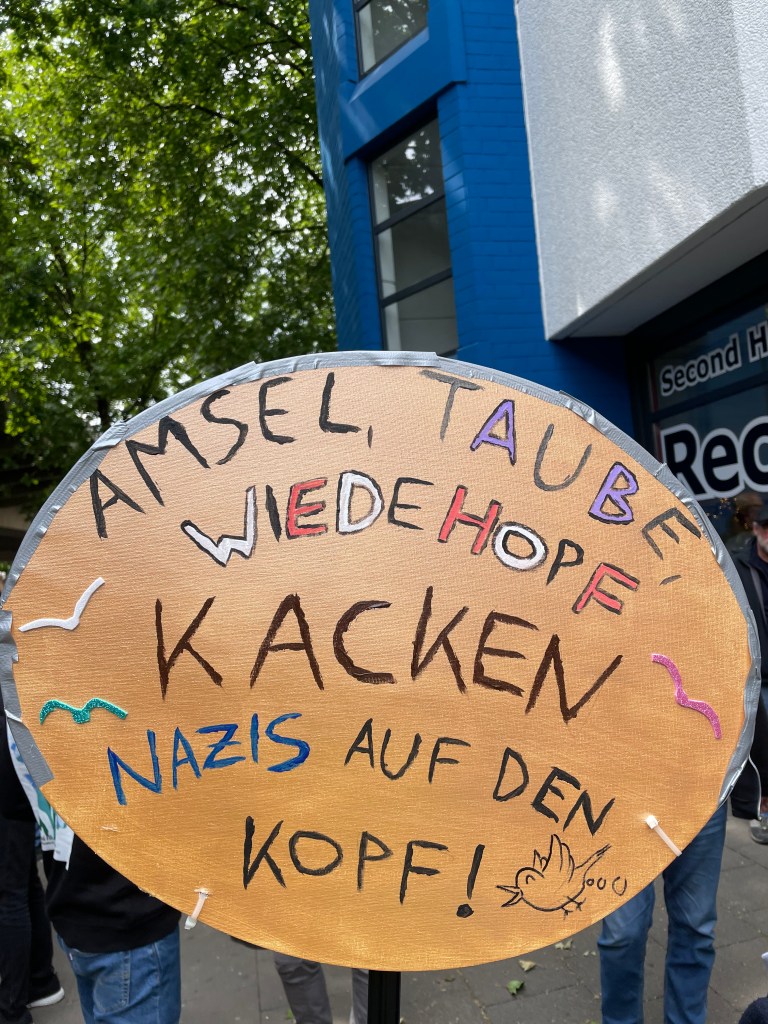 AMSEL, TAUBE,
WIEDEHOPF
KACKEN
NAZIS AUF DEN
KOPF!
Second H
Rec